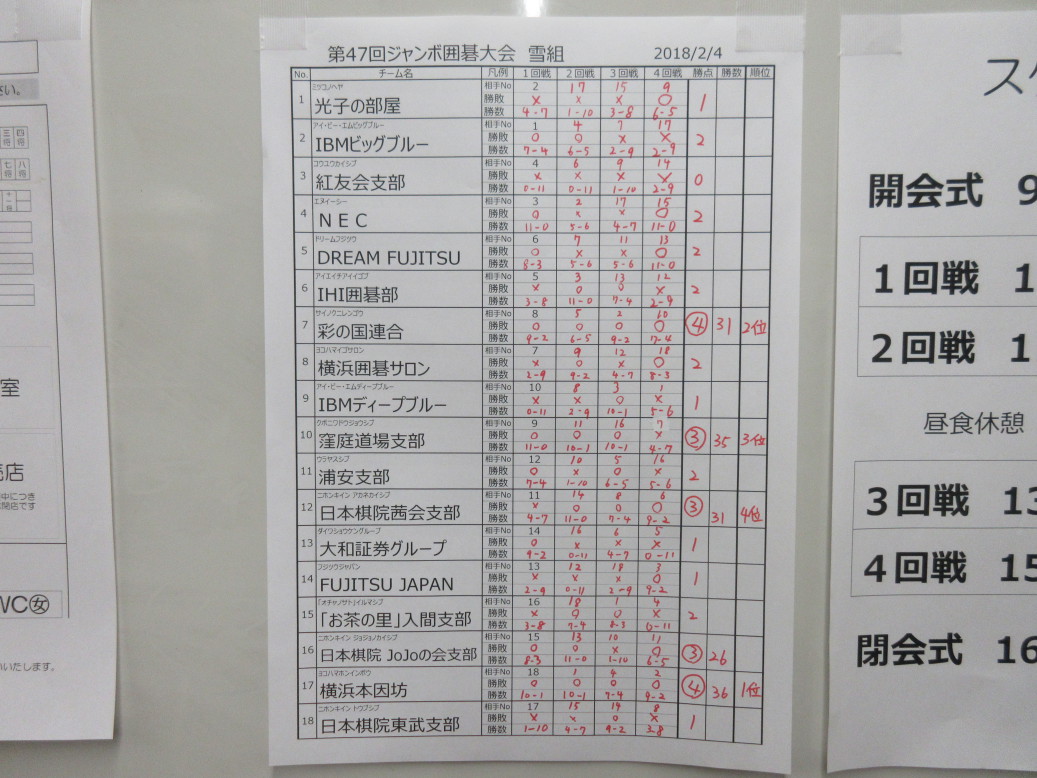 さい。
三将 四将
七将 八将
室
売店
中につき
開店です
WC㊛
いいたします。
第47回ジャンボ囲碁大会 雪組 2018/2/4
No. チーム名 凡例 1回戦 2回戦 3回戦 4回戦 勝点 勝数 順位
ミツコノヘヤ 相手No 2 17 15 9
1 光子の部屋 勝敗 × × × ○ 1
勝数 4-7 1-10 3-8 6-5
アイ・ビー・エムビッグブルー 相手No 1 4 7 17
2 IBMビッグブルー 勝敗 ○ ○ × × 2
勝数 7-4 6-5 2-9 2-9
コウユウカイシブ 相手No 4 6 9 14
3 紅友会支部 勝敗 × × × × 0
勝数 0-11 0-11 1-10 2-9
エヌイーシー 相手No 3 2 17 15
4 NEC 勝敗 ○ × × ○ 2
勝数 11-0 5-6 4-7 11-0
ドリームフジツウ 相手No 6 7 11 13
5 DREAM FUJITSU 勝敗 ○ × × ○ 2
勝数 8-3 5-6 5-6 11-0
アイエイチアイイゴブ 相手No 5 3 13 12
6 IHI囲碁部 勝敗 × ○ ○ × 2
勝数 3-8 11-0 7-4 2-9
サイノクニレンゴウ 相手No 8 5 2 10
7 彩の国連合 勝敗 ○ ○ ○ ○ ④ 31 2位
勝数 9-2 6-5 9-2 7-4
ヨコハマイゴサロン 相手No 7 9 12 18
8 横浜囲碁サロン 勝敗 × ○ × ○ 2
勝数 2-9 9-2 4-7 8-3
アイ・ビー・エムディープブルー 相手No 10 8 3 1
9 IBMディープブルー 勝敗 × × ○ × 1
勝数 0-11 2-9 10-1 5-6
クボニワドウジョウシブ 相手No 9 11 16 7
10 窪庭道場支部 勝敗 ○ ○ ○ × ③ 35 3位
勝数 11-0 10-1 10-1 4-7
ウラヤスシブ 相手No 12 10 5 16
11 浦安支部 勝敗 ○ × ○ × 2
勝数 7-4 1-10 6-5 5-6
ニホンキイン アカネカイシブ 相手No 11 14 8 6
12 日本棋院茜会支部 勝敗 × ○ ○ ○ ③ 31 4位
勝数 4-7 11-0 7-4 9-2
ダイワショウケングループ 相手No 14 16 6 5
13 大和証券グループ 勝敗 ○ × × × 1
勝数 9-2 0-11 4-7 0-11
フジツウジャパン 相手No 13 12 18 3
14 FUJITSU JAPAN 勝敗 × × × ○ 1
勝数 2-9 0-11 2-9 9-2
「オチャノサト」イルマシブ 相手No 16 18 1 4
15 「お茶の里」入間支部 勝敗 × ○ ○ × 2
勝数 3-8 7-4 8-3 0-11
ニホンキイン ジョジョノカイシブ 相手No 15 13 10 11
16 日本棋院 JoJoの会支部 勝敗 ○ ○ × ○ ③ 26
勝数 8-3 11-0 1-10 6-5
ヨコハマホンインボウ 相手No 18 1 4 2
17 横浜本因坊 勝敗 ○ ○ ○ ○ ④ 36 1位
勝数 10-1 10-1 7-4 9-2
ニホンキイン トウブシブ 相手No 17 15 14 8
18 日本棋院東武支部 勝敗 × × ○ × 1
勝数 1-10 4-7 9-2 3-8
開会式 9
1回戦 1
2回戦 1
昼食休憩
3回戦 13
4回戦 15
閉会式 16